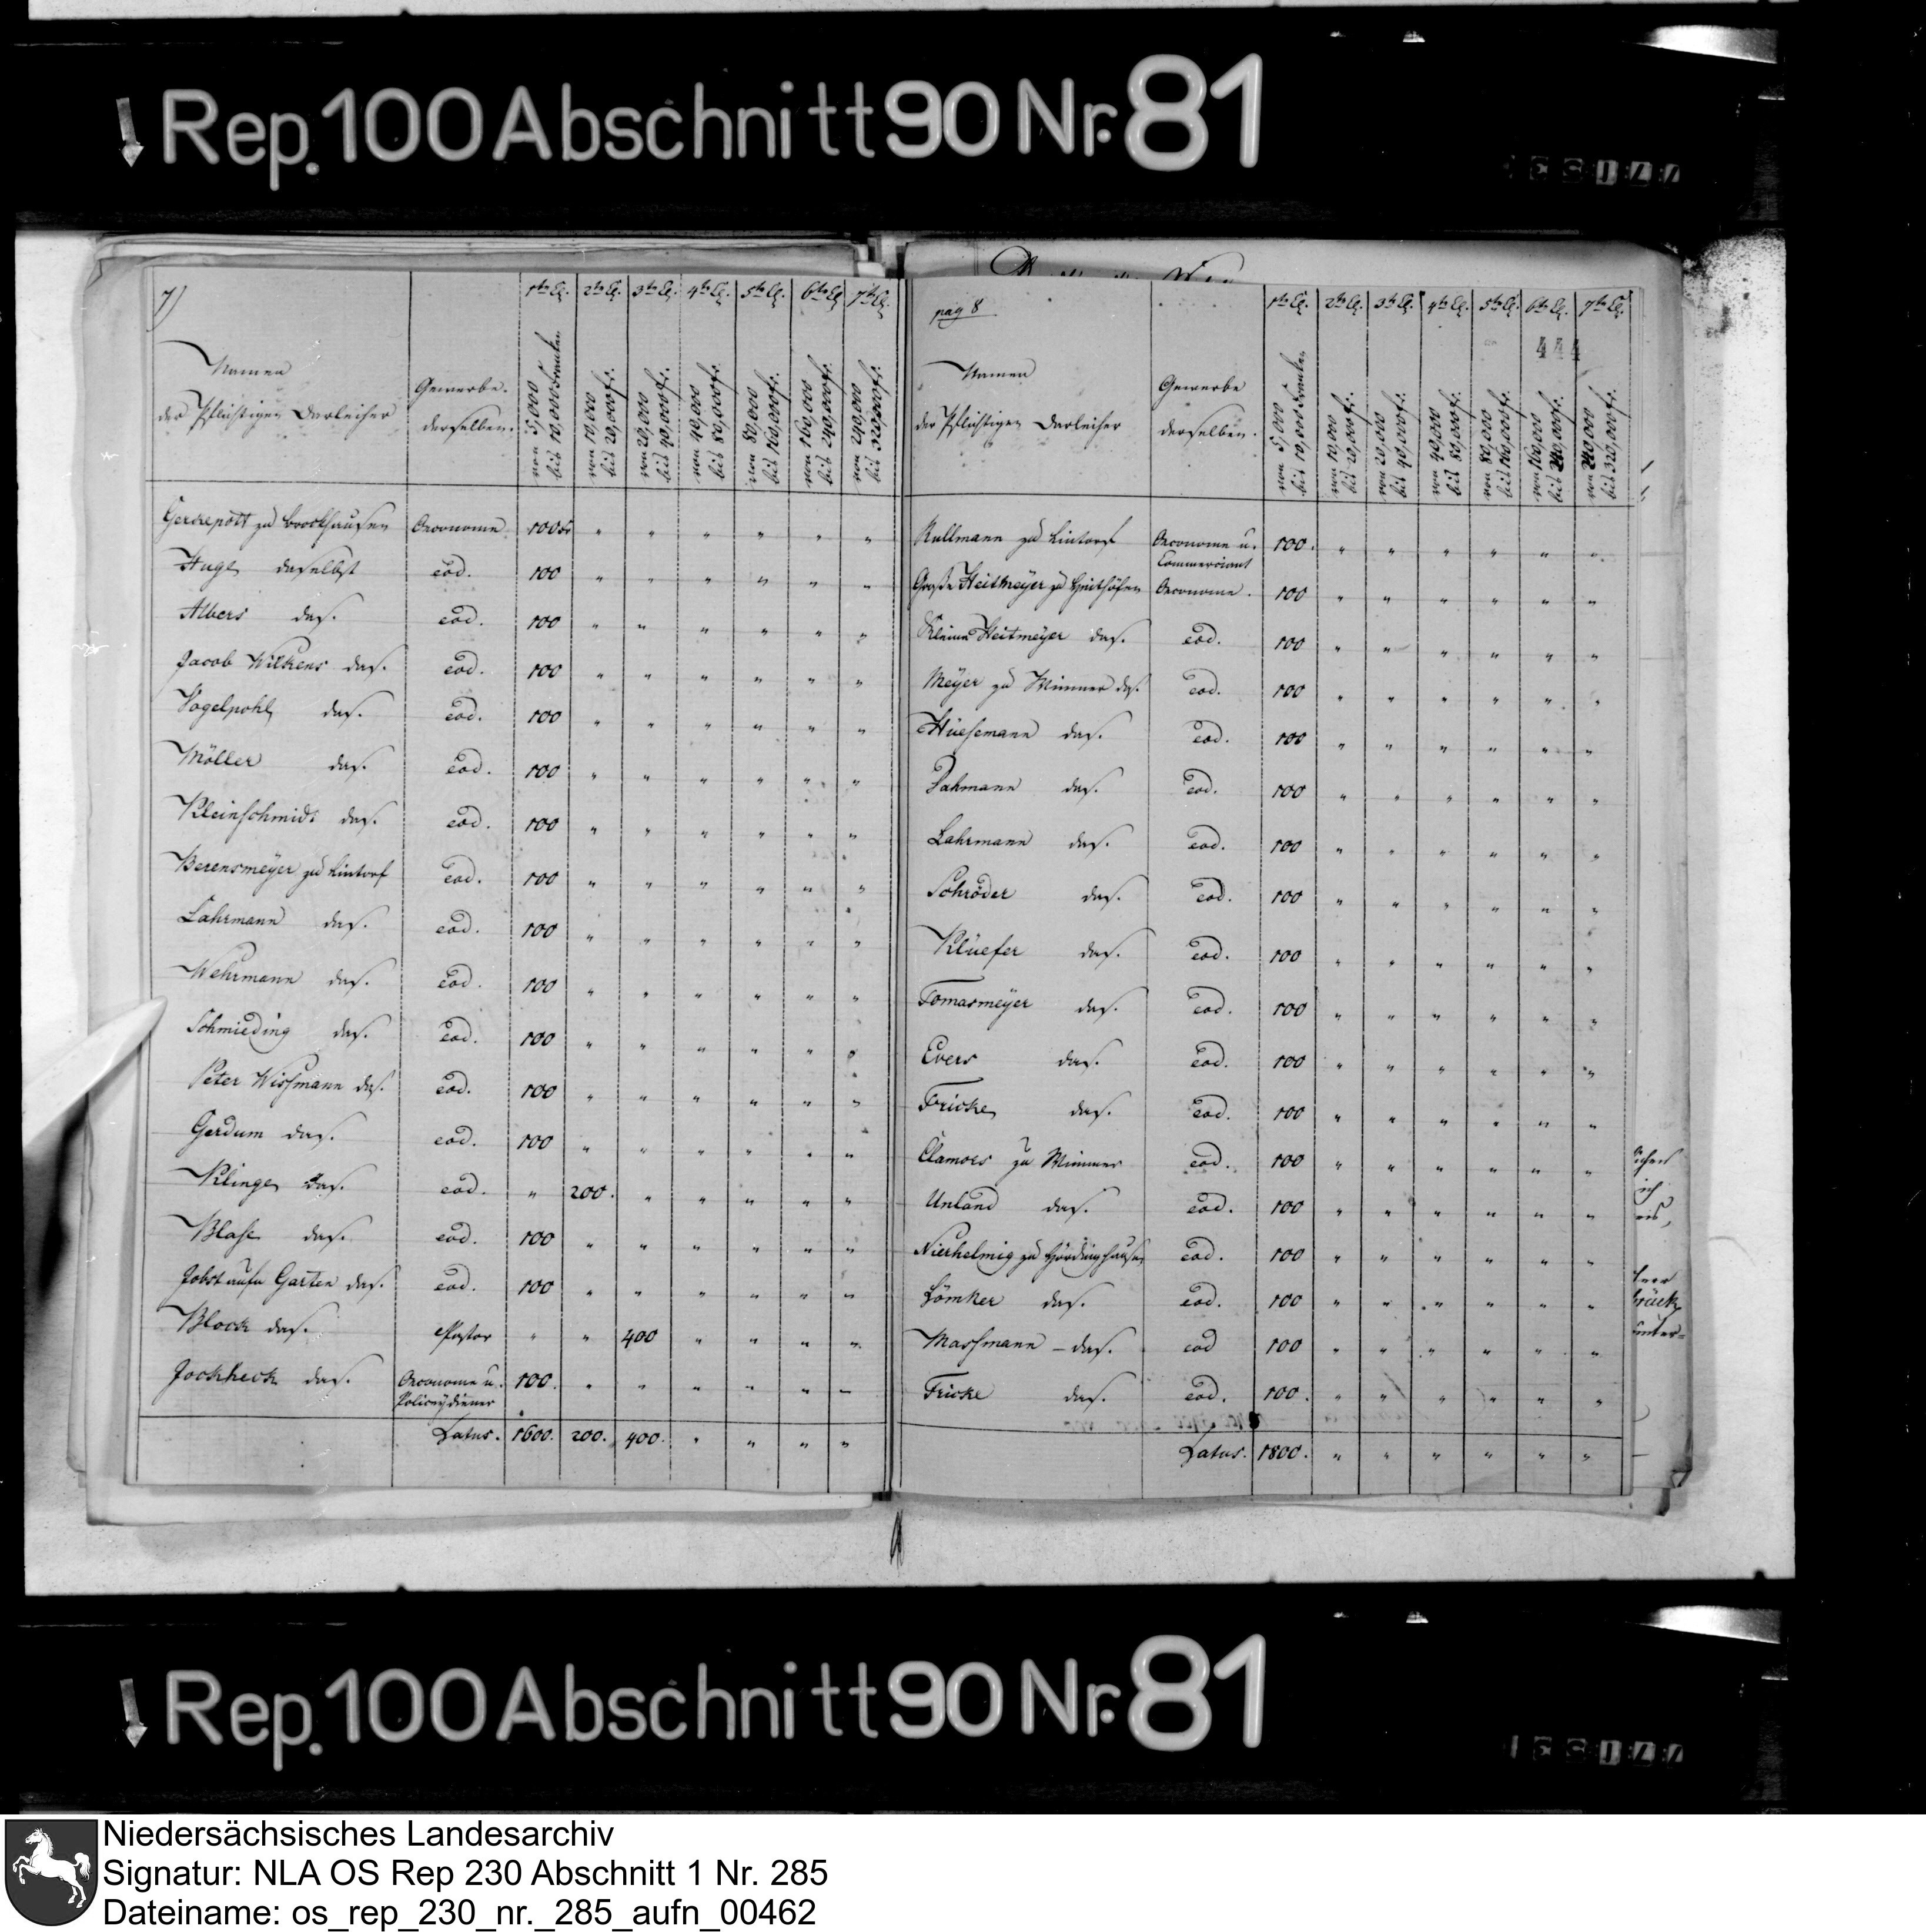 Rep. 100 Abschnitt 90 Nr. 81
7)
Namen
der Pflichtigen Darleiher
Gewerbe
derselben.
1te Cl. 2te Cl. 3te Cl. 4te Cl. 5te Cl. 6te Cl. 7te Cl.
von 5,000 bis 10,000 Franken
von 10,000 bis 20,000 fr.
von 20,000 bis 40,000 fr.
von 40,000 bis 80,000 fr.
von 80,000 bis 160,000 fr.
von 160,000 bis 240,000 fr.
von 240,000 bis 320,000 fr.
Gerkepott zu Brockhausen Oeconome. 100 fr " " " " " "
Huge daselbst eod. 100 " " " " " "
Albers das. eod. 100 " " " " " "
Jacob Wilkens das. eod. 100 " " " " " "
Vogelpohl das. eod. 100 " " " " " "
Möller das. eod. 100 " " " " " "
Kleinschmidt das. eod. 100 " " " " " "
Berensmeyer zu Lintorf eod. 100 " " " " " "
Lahrmann das. eod. 100 " " " " " "
Wehrmann das. eod. 100 " " " " " "
Schmieding das. eod. 100 " " " " " "
Peter Wissmann das. eod. 100 " " " " " "
Gerdum das. eod. 100 " " " " " "
Klinge das. eod. " 200. " " " " "
Blase das. eod. 100 " " " " " "
Jobst aufn Garten das. eod. 100 " " " " " "
Block das. Pastor " " 400 " " " "
Jockheck das. Oeconome u. 100. " " " " " "
Policeydiener
Latus. 1600. 200. 400. " " " "
pag 8
444
Namen
der Pflichtigen Darleiher
Gewerbe
derselben.
1te Cl. 2te Cl. 3te Cl. 4te Cl. 5te Cl. 6te Cl. 7te Cl.
von 5,000 bis 10,000 Franken
von 10,000 bis 20,000 fr.
von 20,000 bis 40,000 fr.
von 40,000 bis 80,000 fr.
von 80,000 bis 160,000 fr.
von 160,000 bis 240,000 fr.
von 240,000 bis 320,000 fr.
Kullmann zu Lintorf Oeconome u. 100. " " " " " "
Commerciant
Große Heitmeyer zu Oeconome. 100 " " " " " "
Kleine Heitmeyer das. eod. 100 " " " " " "
Meyer zu Wimmer das. eod. 100 " " " " " "
Hüesemann das. eod. 100 " " " " " "
Pahmann das. eod. 100 " " " " " "
Lahrmann das. eod. 100 " " " " " "
Schröder das. eod. 100 " " " " " "
Klüefer das. eod. 100 " " " " " "
Tomasmeyer das. eod. 100 " " " " " "
Evers das. eod. 100 " " " " " "
Fricke das. eod. 100 " " " " " "
Clamors zu Wimmer eod. 100 " " " " " "
Unland das. eod. 100 " " " " " "
Nierhelmig zu Hördinghausen eod. 100 " " " " " "
Lömker das. eod. 100 " " " " " "
Massmann - das. eod 100 " " " " " "
Fricke das. eod. 100. " " " " " "
Latus. 1800. " " " " " "
Rep. 100 Abschnitt 90 Nr. 81
Niedersächsisches Landesarchiv
Signatur: NLA OS Rep 230 Abschnitt 1 Nr. 285
Dateiname: os_rep_230_nr._285_aufn_00462